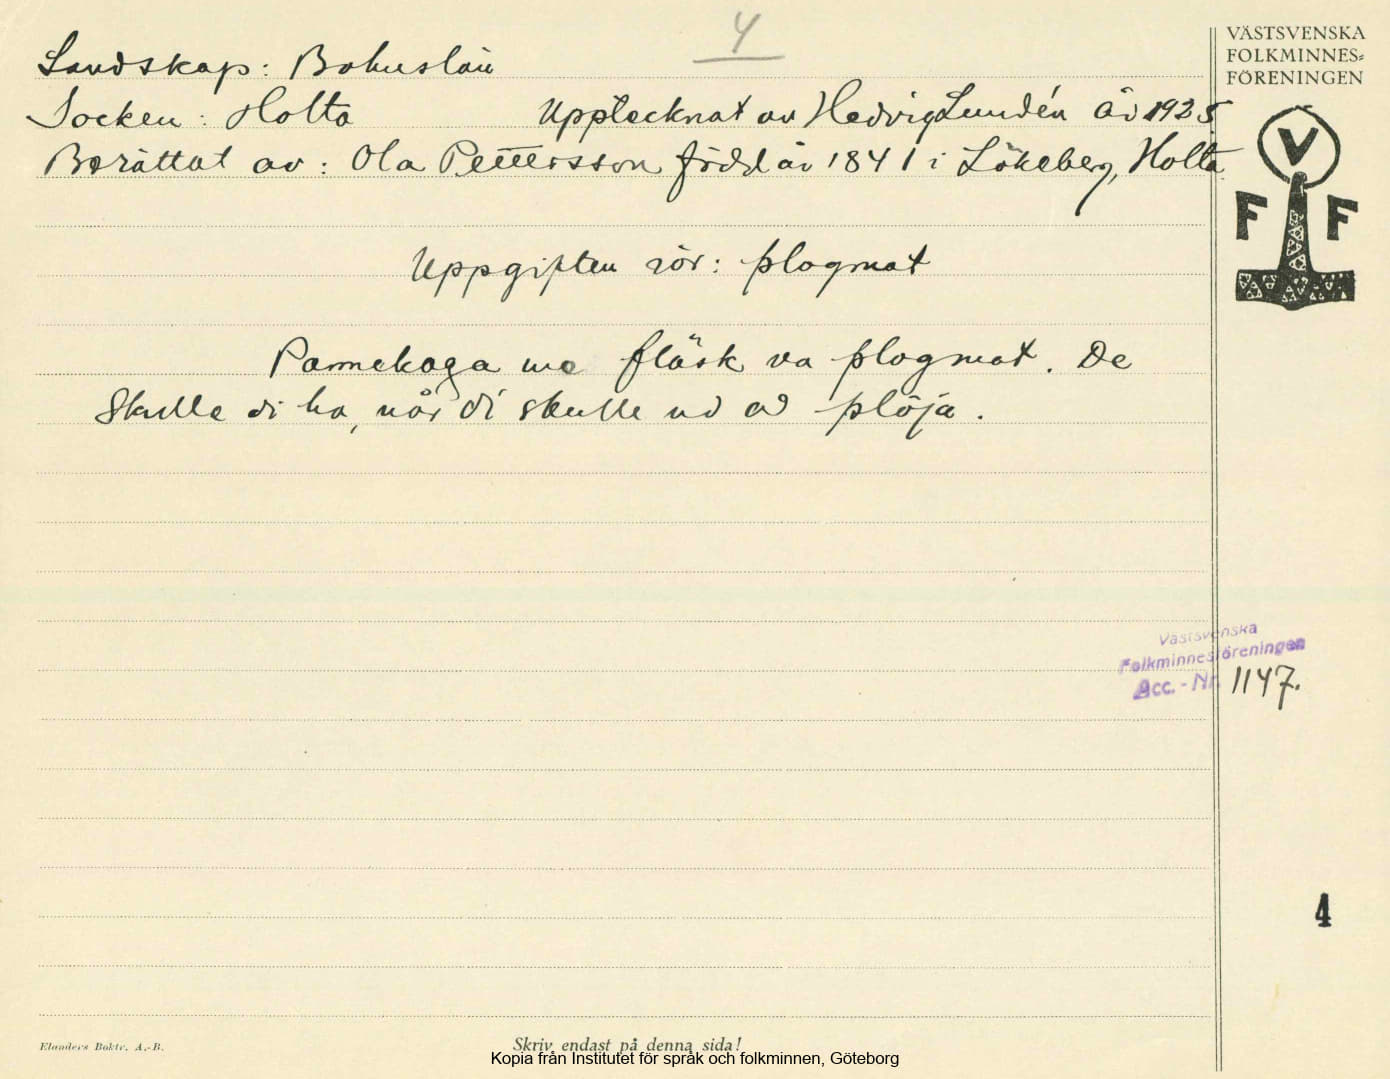 4
VÄSTSVENSKA
FOLKMINNES=
FÖRENINGEN
Landskap: Bohuslän
Socken: Holta Upptecknat av Hedvig Lundén År 1925
Berättat av: Ola Pettersson född år 1841 i Lökeberg, Holta.
V
F F
Uppgiften rör: plogmat
Pannekaga me fläsk va plogmat. De
skulle di ha, når di skulle ud ad plöja.
Västsvenska
Folkminnesföreningen
Acc.-Nr. 1147.
4
Elanders Boktr. A.-B.
Skriv endast på denna sida!
Kopia från Institutet för språk och folkminnen, Göteborg